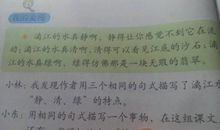 漓江的水真静啊，静得让你感觉不到它在流
动；漓江的水真清啊，清得可以看见江底的沙石；漓
江的水真绿啊，绿得仿佛那是一块无瑕的翡翠。
小林：我发现作者用三个相同的句式写了漓江
“静、清、绿”的特点。
小东：用相同的句式描写一个事物，在这组课文